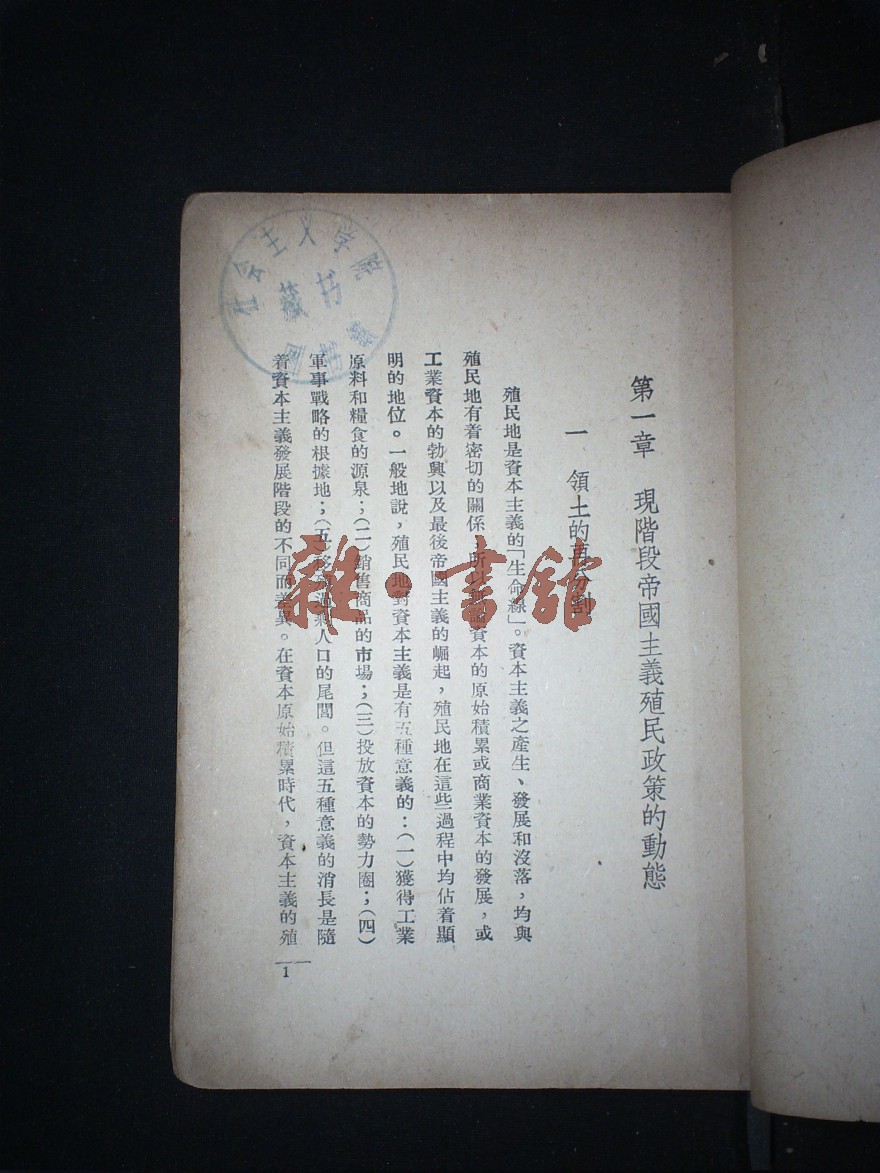 第一章　現階段帝國主義殖民政策的動態
一　領土的再分割
殖民地是資本主義的「生命線」。資本主義之產生、發展和沒落，均與
殖民地有着密切的關係，所以無論資本的原始積累或商業資本的發展，或
工業資本的勃興以及最後帝國主義的崛起，殖民地在這些過程中均佔着顯
明的地位。一般地說，殖民地對資本主義是有五種意義的：（一）獲得工業
原料和糧食的源泉；（二）銷售商品的市場；（三）投放資本的勢力圈；（四）
軍事戰略的根據地；（五）移殖過剩人口的尾閭。但這五種意義的消長是隨
着資本主義發展階段的不同而差異。在資本原始積累時代，資本主義的殖
1
社会主义学院
藏书
雜·書館